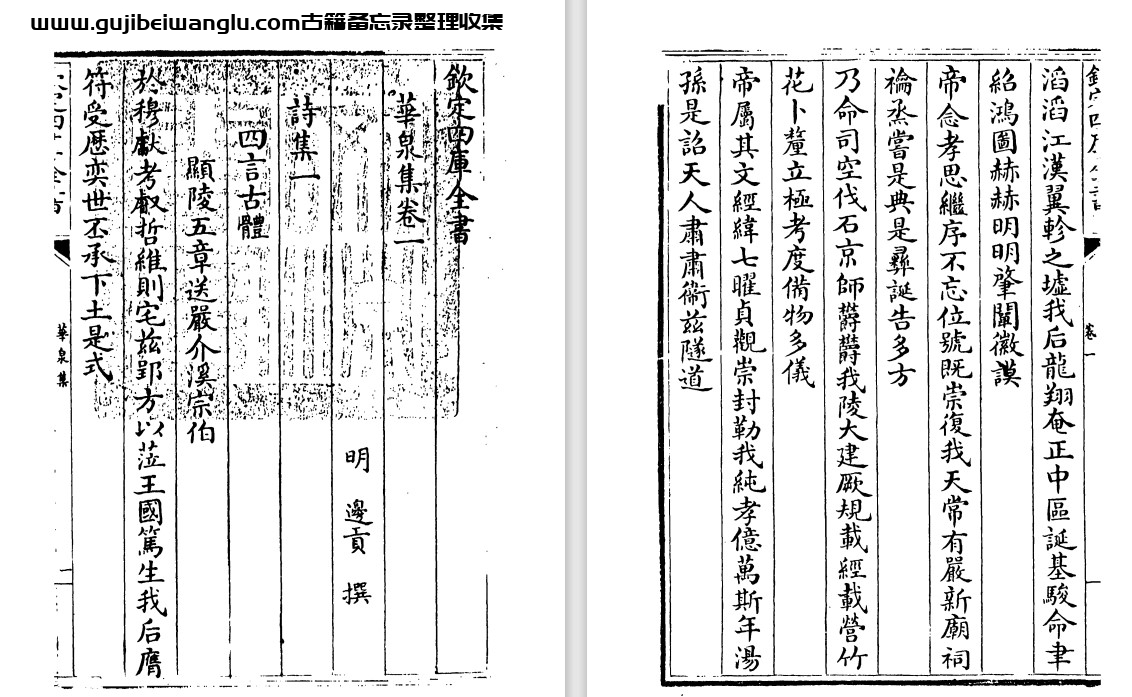 www.gujibeiwanglu.com古籍备忘录整理收集
欽定四庫全書
華泉集卷一
明 邊貢 撰
詩集一
四言古體
顯陵五章送嚴介溪宗伯
於穆獻考叡哲維則宅兹郢方以蒞王國篤生我后膺
符受厯奕世丕承下土是式
華泉集
一
卷一
滔滔江漢翼軫之墟我后龍翔奄正中區誕基駿命聿
紹鴻圖赫赫明明肇闡徽謨
帝念孝思繼序不忘位號既崇復我天常有嚴新廟祠
禴烝嘗是典是彛誕告多方
乃命司空伐石京師欝欝我陵大建厥規載經載營竹
花卜釐立極考度備物多儀
帝屬其文經緯七曜貞觀崇封勒我純孝億萬斯年湯
孫是詔天人肅肅衞兹隧道